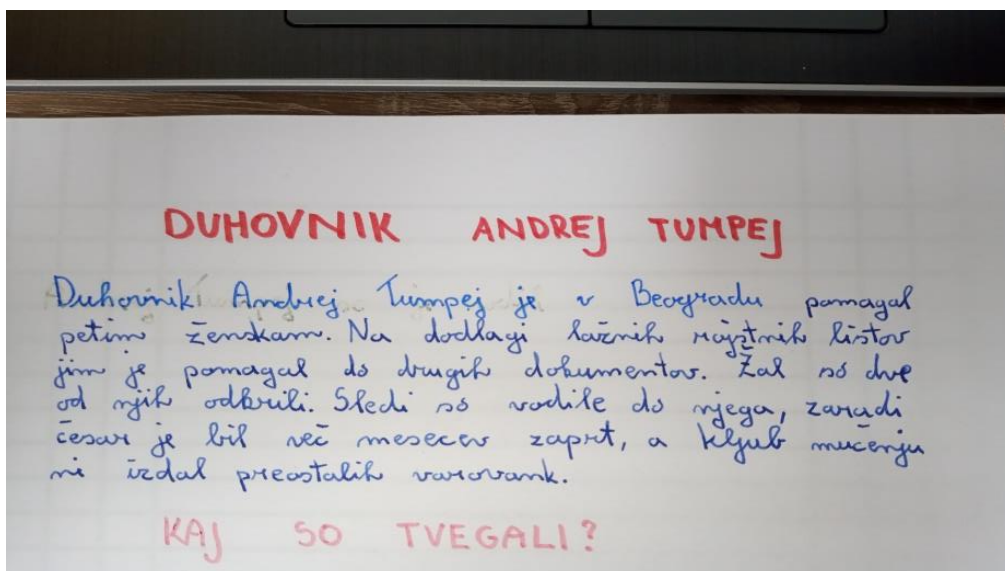 DUHOVNIK ANDREJ TUMPEJ
Duhovnik Andrej Tumpej je v Beogradu pomagal
petim ženskam. Na dodlagi lažnih rojstnih listov
jim je pomagal do drugih dokumentov. Žal so dve
od njih odkrili. Sledi so vodile do njega, zaradi
česar je bil več mesecev zaprt, a kljub mučenju
ni izdal preostalih varovank.
KAJ SO TVEGALI?